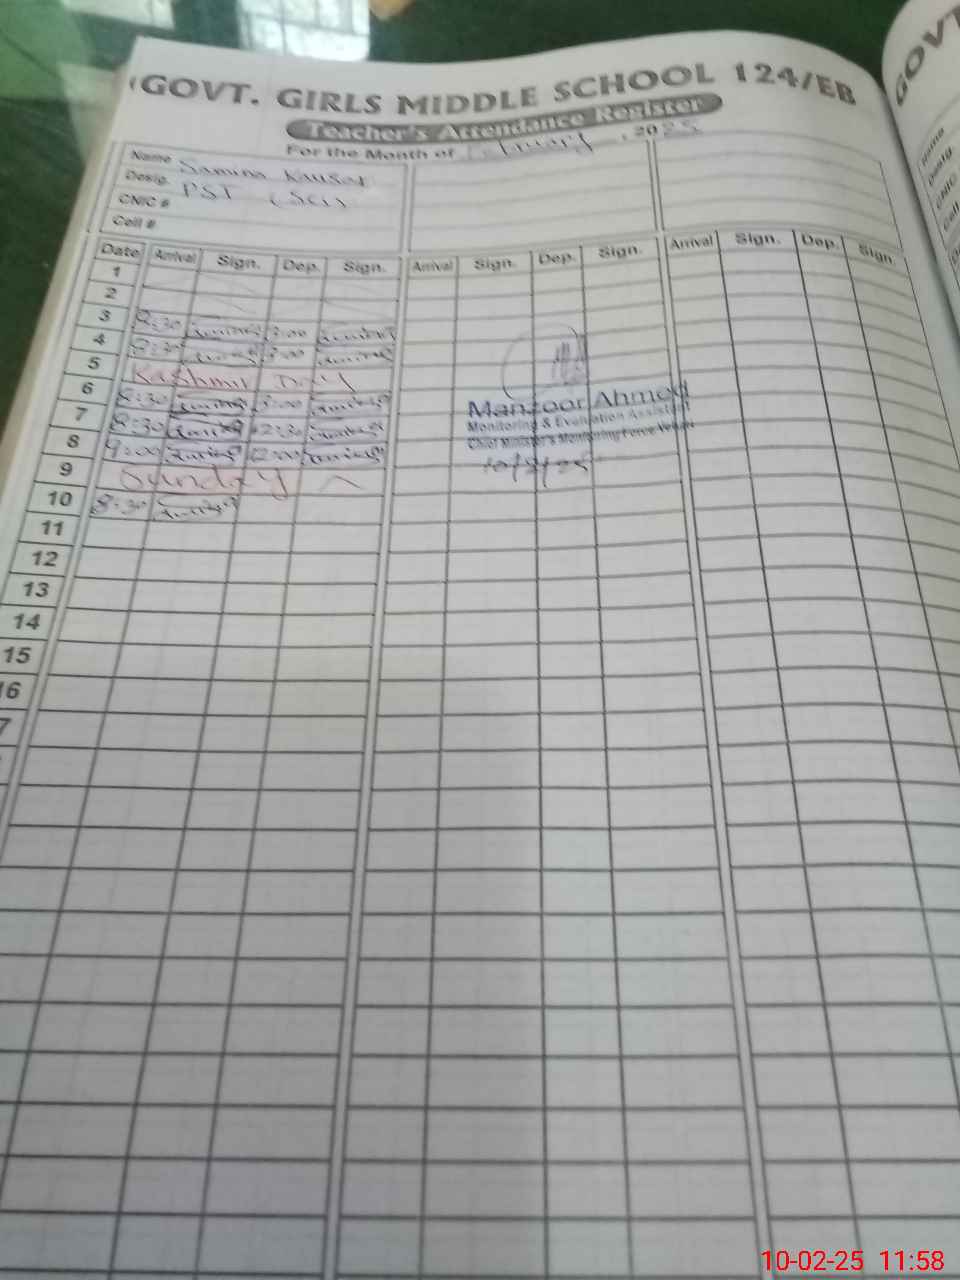 GOVT. GIRLS MIDDLE SCHOOL 124/EB
Teacher's Attendance Register
For the Month of February, 2025
Name Samina Kausar
Desig. PST (Sci)
CNIC #
Cell #
Date Arrival Sign. Dep. Sign. Arrival Sign. Dep. Sign. Arrival Sign. Dep. Sign.
1
2
3 8:30
4 8:30
5 Kashmir Day
6 8:30
7 8:30 12:30
8 9:00 12:00
9 Sunday
10 8:30
11
12
13
14
15
16
7
Manzoor Ahmed
Monitoring & Evaluation Assistant
Chief Minister's Monitoring Force
10/2/25
GOVT
Name
Desig
CNIC
Cell
10-02-25 11:58